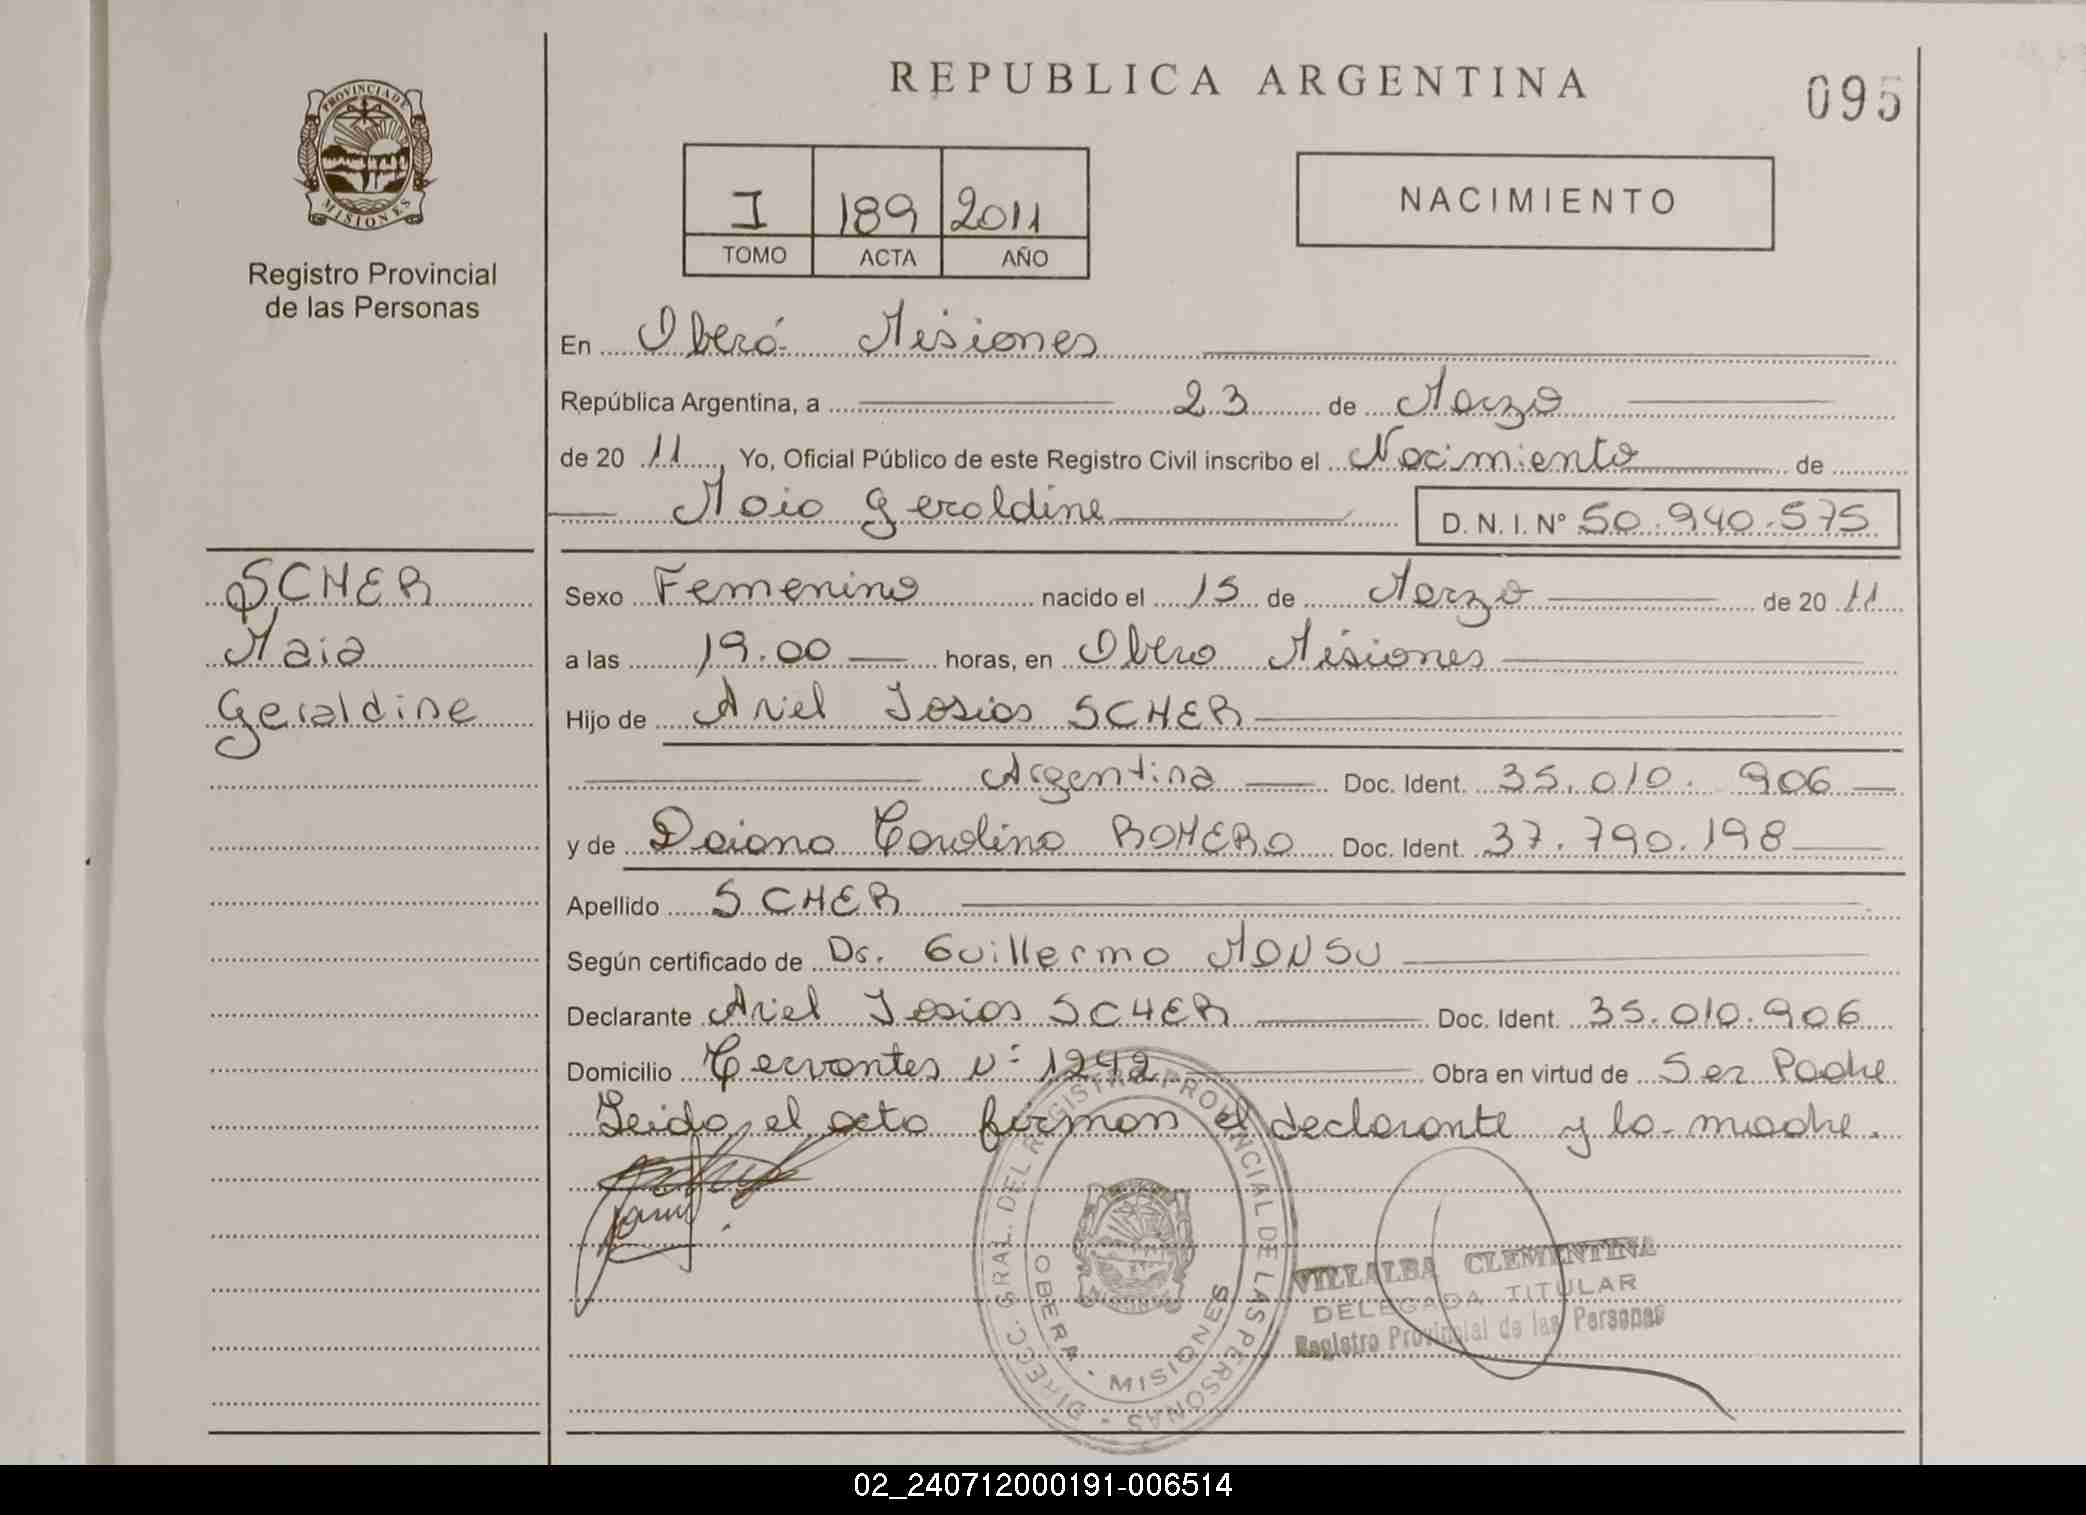 REPUBLICA ARGENTINA
095
PROVINCIA DE
MISIONES
Registro Provincial
de las Personas
I 189 2011
TOMO ACTA AÑO
NACIMIENTO
En Oberá Misiones
República Argentina, a 23 de Marzo
de 20 11, Yo, Oficial Público de este Registro Civil inscribo el Nacimiento de
Maia Geraldine D. N. I. Nº 50.940.575
SCHER
Maia
Geraldine
Sexo Femenino nacido el 15 de Marzo de 20 11
a las 19.00 horas, en Obera Misiones
Hijo de Ariel Josias SCHER
Argentina Doc. Ident. 35.010.906
y de Daiana Carolina ROMERO Doc. Ident. 37.790.198
Apellido SCHER
Según certificado de Dr. Guillermo MONSU
Declarante Ariel Josias SCHER Doc. Ident. 35.010.906
Domicilio Cervantes Nº 1242 Obra en virtud de Ser Padre
Leida el acta firman el declarante y la madre.
DIRECC. GRAL. DEL REGISTRO PROVINCIAL DE LAS PERSONAS
OBERA - MISIONES
VILLALBA CLEMENTINA
DELEGADA TITULAR
Registro Provincial de las Personas
02_240712000191-006514